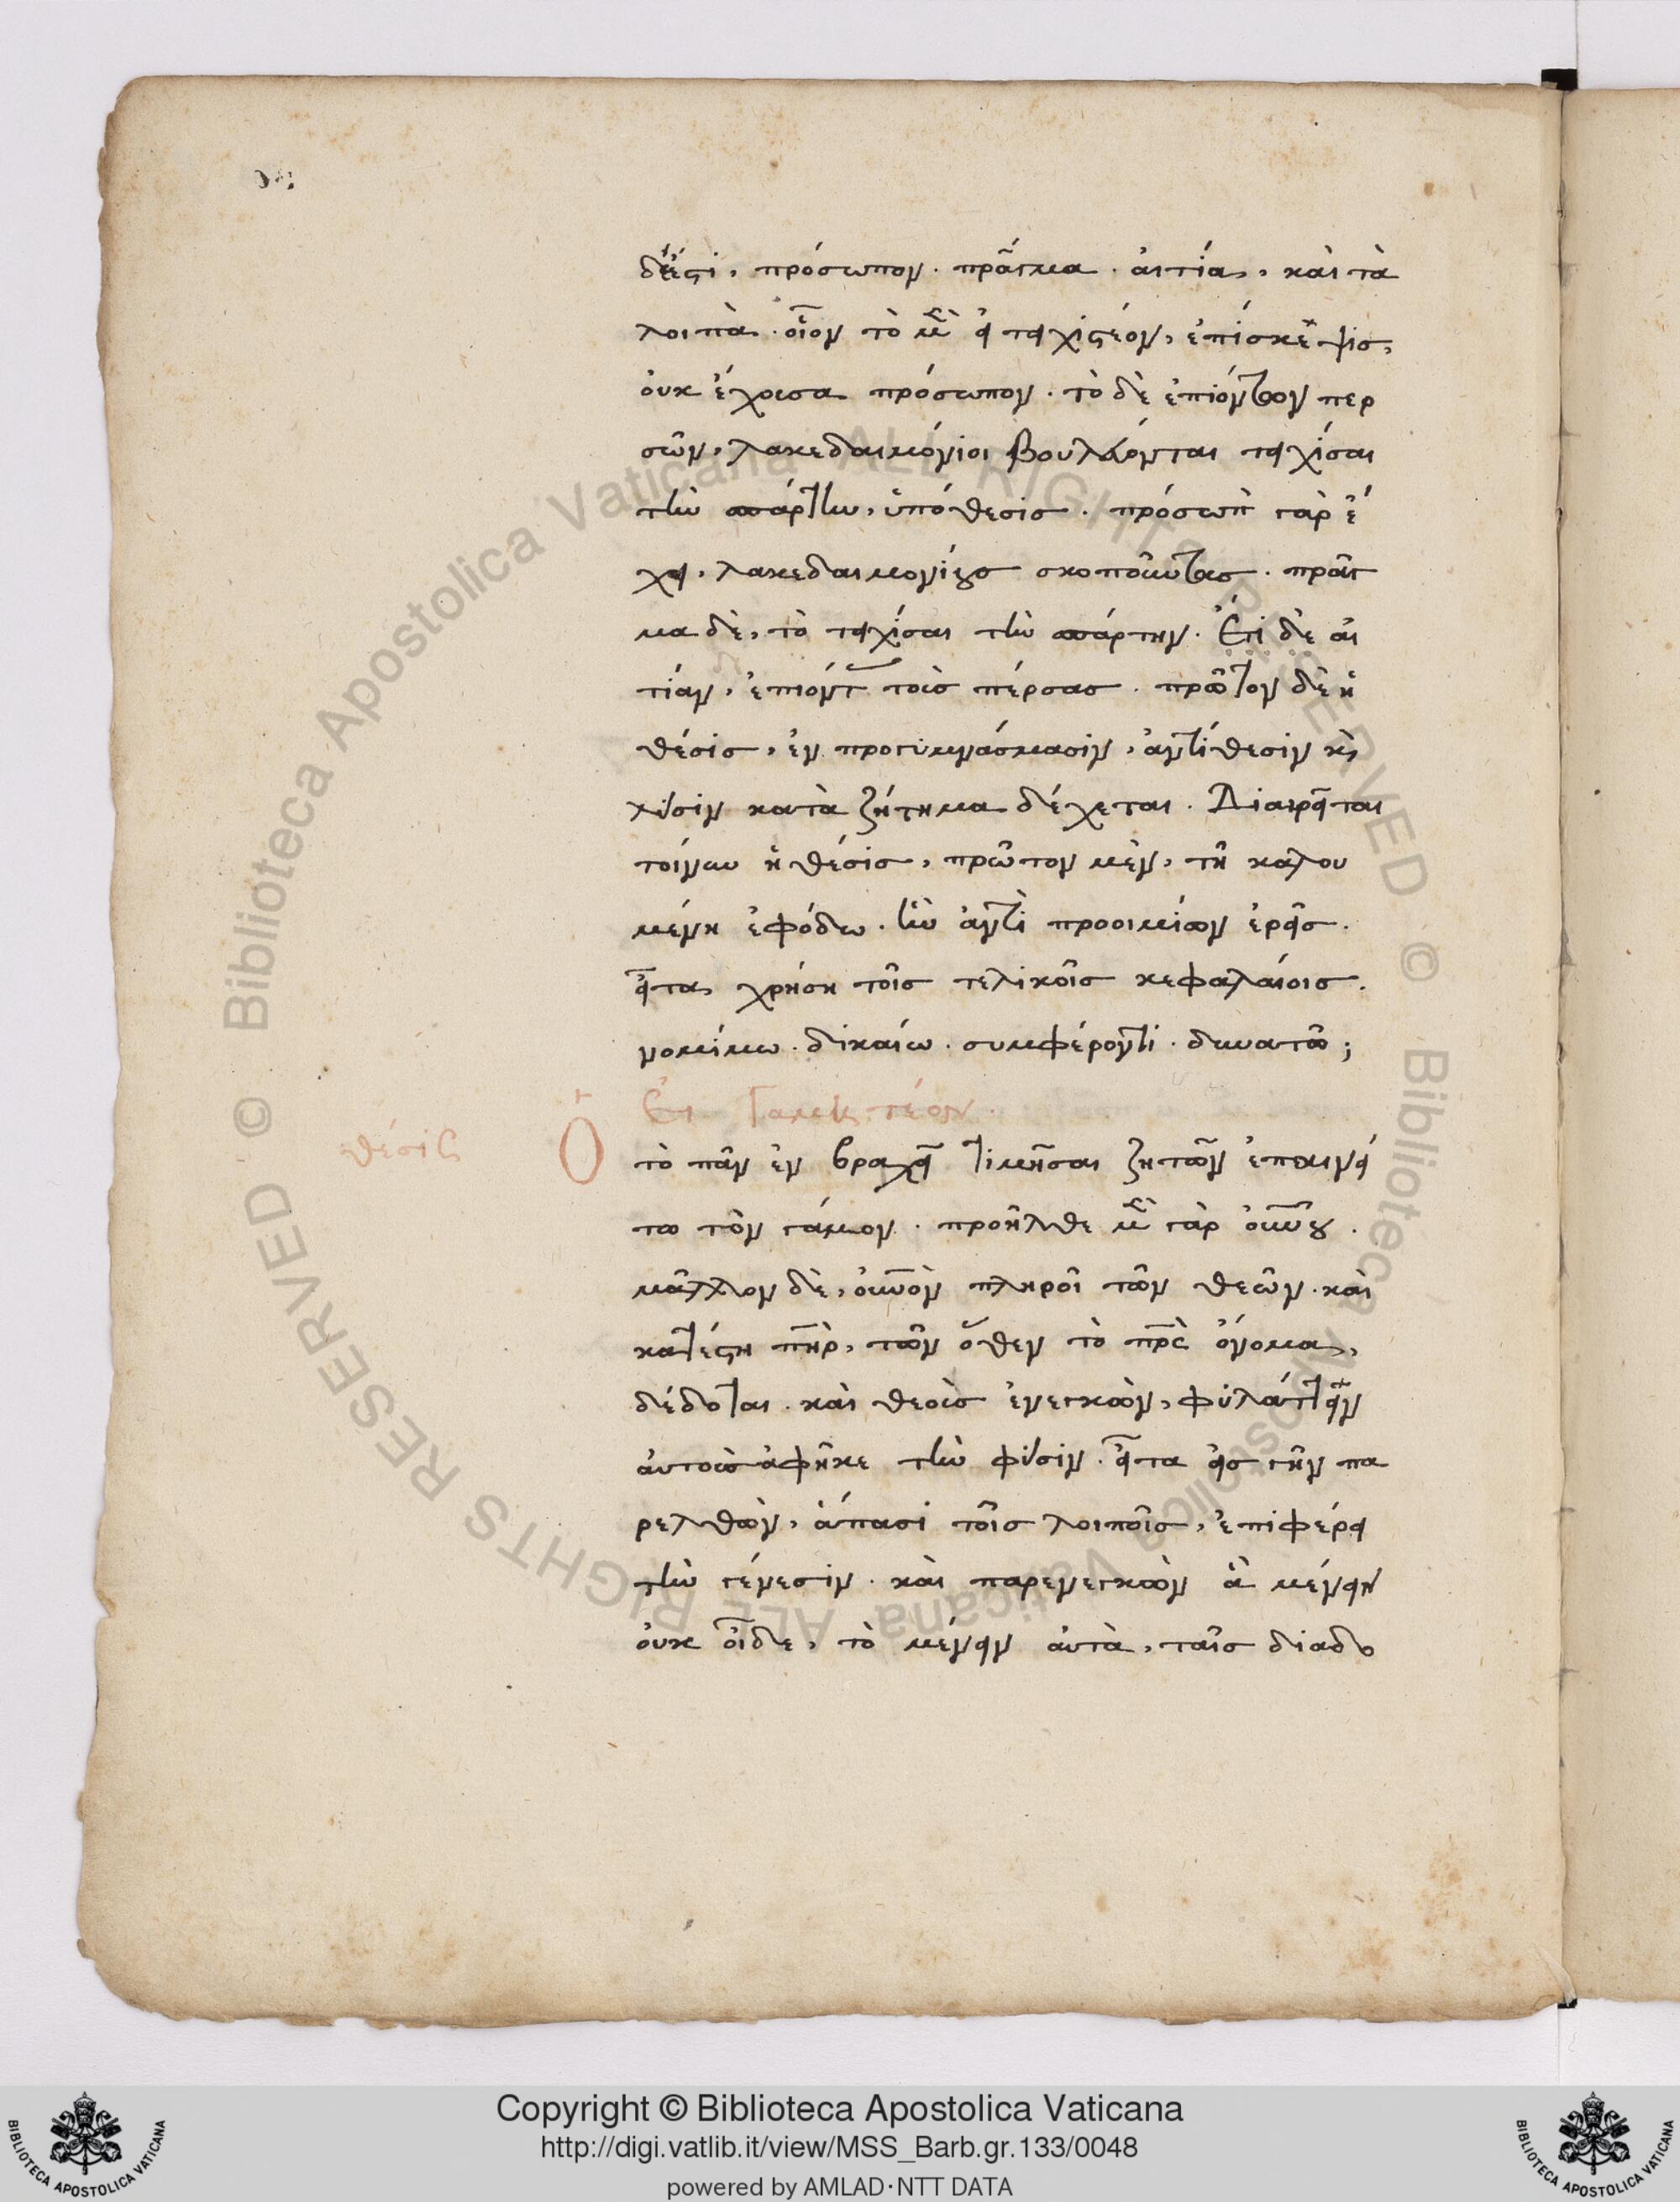 δέ ἐστι, πρόσωπον · πρᾶγμα · αἰτία, καὶ τὰ
λοιπὰ · οἷον τὸ μὲν εἰ τειχιστέον, ἐπίσκεψις,
οὐκ ἔχουσα πρόσωπον · τὸ δὲ ἐπιόντων περ
σῶν, λακεδαιμόνιοι βουλεύονται τειχίσαι
τὴν σπάρτην, ὑπόθεσις · πρόσωπον γὰρ ἔ
χει, λακεδαιμονίους σκοποῦντας · πρᾶγ
μα δὲ, τὸ τειχίσαι τὴν σπάρτην · Ἔτι δὲ αἰ
τίαν, ἐπιόντας τοὺς πέρσας · πρῶτον δὲ ἡ
θέσις, ἐν προγυμνάσμασιν, ἀντίθεσιν καὶ
λύσιν κατὰ ζήτημα δέχεται · Διαιρεῖται
τοίνυν ἡ θέσις, πρῶτον μὲν, τῆ καλου
μένη ἐφόδω · ἣν ἀντὶ προοιμίων ἐρεῖς ·
εἶτα χρήση τοῖς τελικοῖς κεφαλαίοις ·
νομίμω · δικαίω · συμφέροντι · δυνατῶ ;
Εἰ γαμητέον ·
θέσις
Ὁ τὸ πᾶν ἐν βραχεῖ τιμῆσαι ζητῶν ἐπαινεί
τω τὸν γάμον · προῆλθε μὲν γὰρ οὐρανοῦ ·
μᾶλλον δὲ, οὐρανὸν πληροῖ τῶν θεῶν · καὶ
κατέστη πατὴρ, τῶν ὅθεν τὸ πατρὸς ὄνομα,
δέδοται · καὶ θεοὺς ἐνεγκὼν, φυλάττειν
αὐτοὺς ἀφῆκε τὴν φύσιν · εἶτα εἰς γῆν πα
ρελθὼν, ἅπασι τοῖς λοιποῖς, ἐπιφέρει
τὴν γένεσιν · καὶ παρενεγκὼν ἃ μένειν
οὐκ οἶδε, τὸ μένειν αὐτὰ, ταῖς διαδο
Copyright © Biblioteca Apostolica Vaticana
http://digi.vatlib.it/view/MSS_Barb.gr.133/0048
powered by AMLAD·NTT DATA